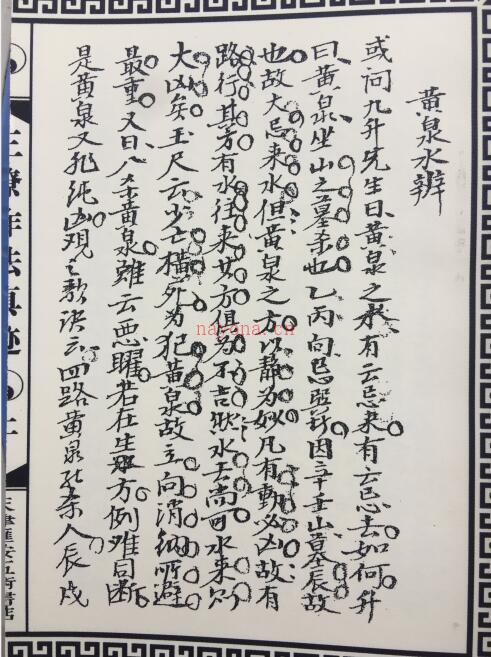 黄泉水辨
或问九升先生曰黄泉之水有云忌来有云忌去如何升
曰黄泉坐山之墓杀也乙丙向忌巽故因辛壬山墓辰故
也故大忌来水但黄泉之方以静为妙凡有動必凶故有
路行其方有水往来其方俱为不吉然水去尚可水来则
大凶矣玉尺云少亡横死为犯黄泉故立向消纳所避
最重又曰八杀黄泉雖云恶曜若在生方例难同断
是黄泉又非纯凶观之歌诀云四路黄泉能杀人辰戌
天津
nayona.cn